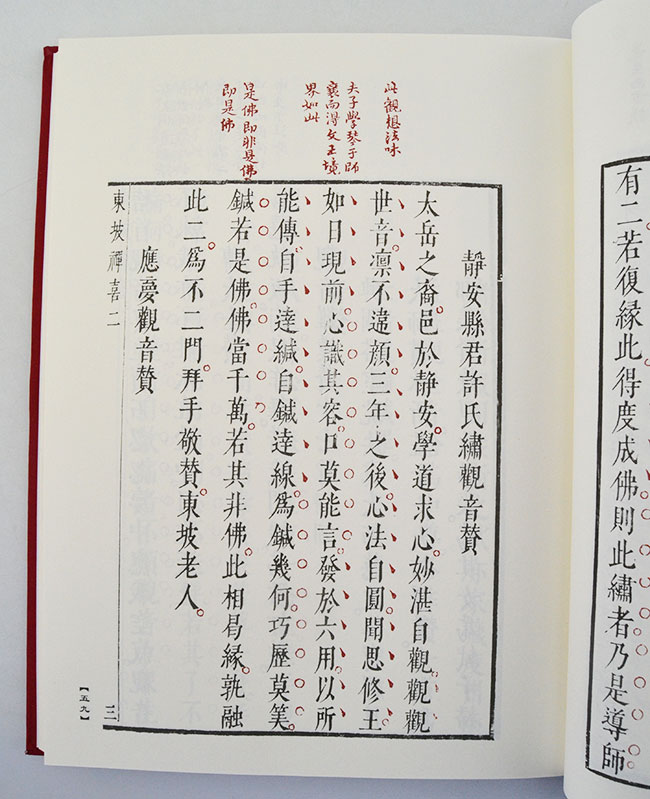 有二若復緣此得度成佛則此繡者乃是導師
此觀想法味
夫子學琴于師
襄而得文王境
界如此
是佛即非是佛
即是佛
靜安縣君許氏繡觀音贊
太岳之裔邑於靜安學道求心妙湛自觀觀觀
世音凛不遠顏三年之後心法自圓聞思修王
如日現前心識其容口莫能言發於六用以所
能傳自手達鍼自鍼達線為鍼幾何巧歷莫筭
鍼若是佛佛當千萬若其非佛此相曷緣孰融
此二為不二門拜手敬贊東坡老人
應夢觀音贊
東坡禪喜二
三
【五九】